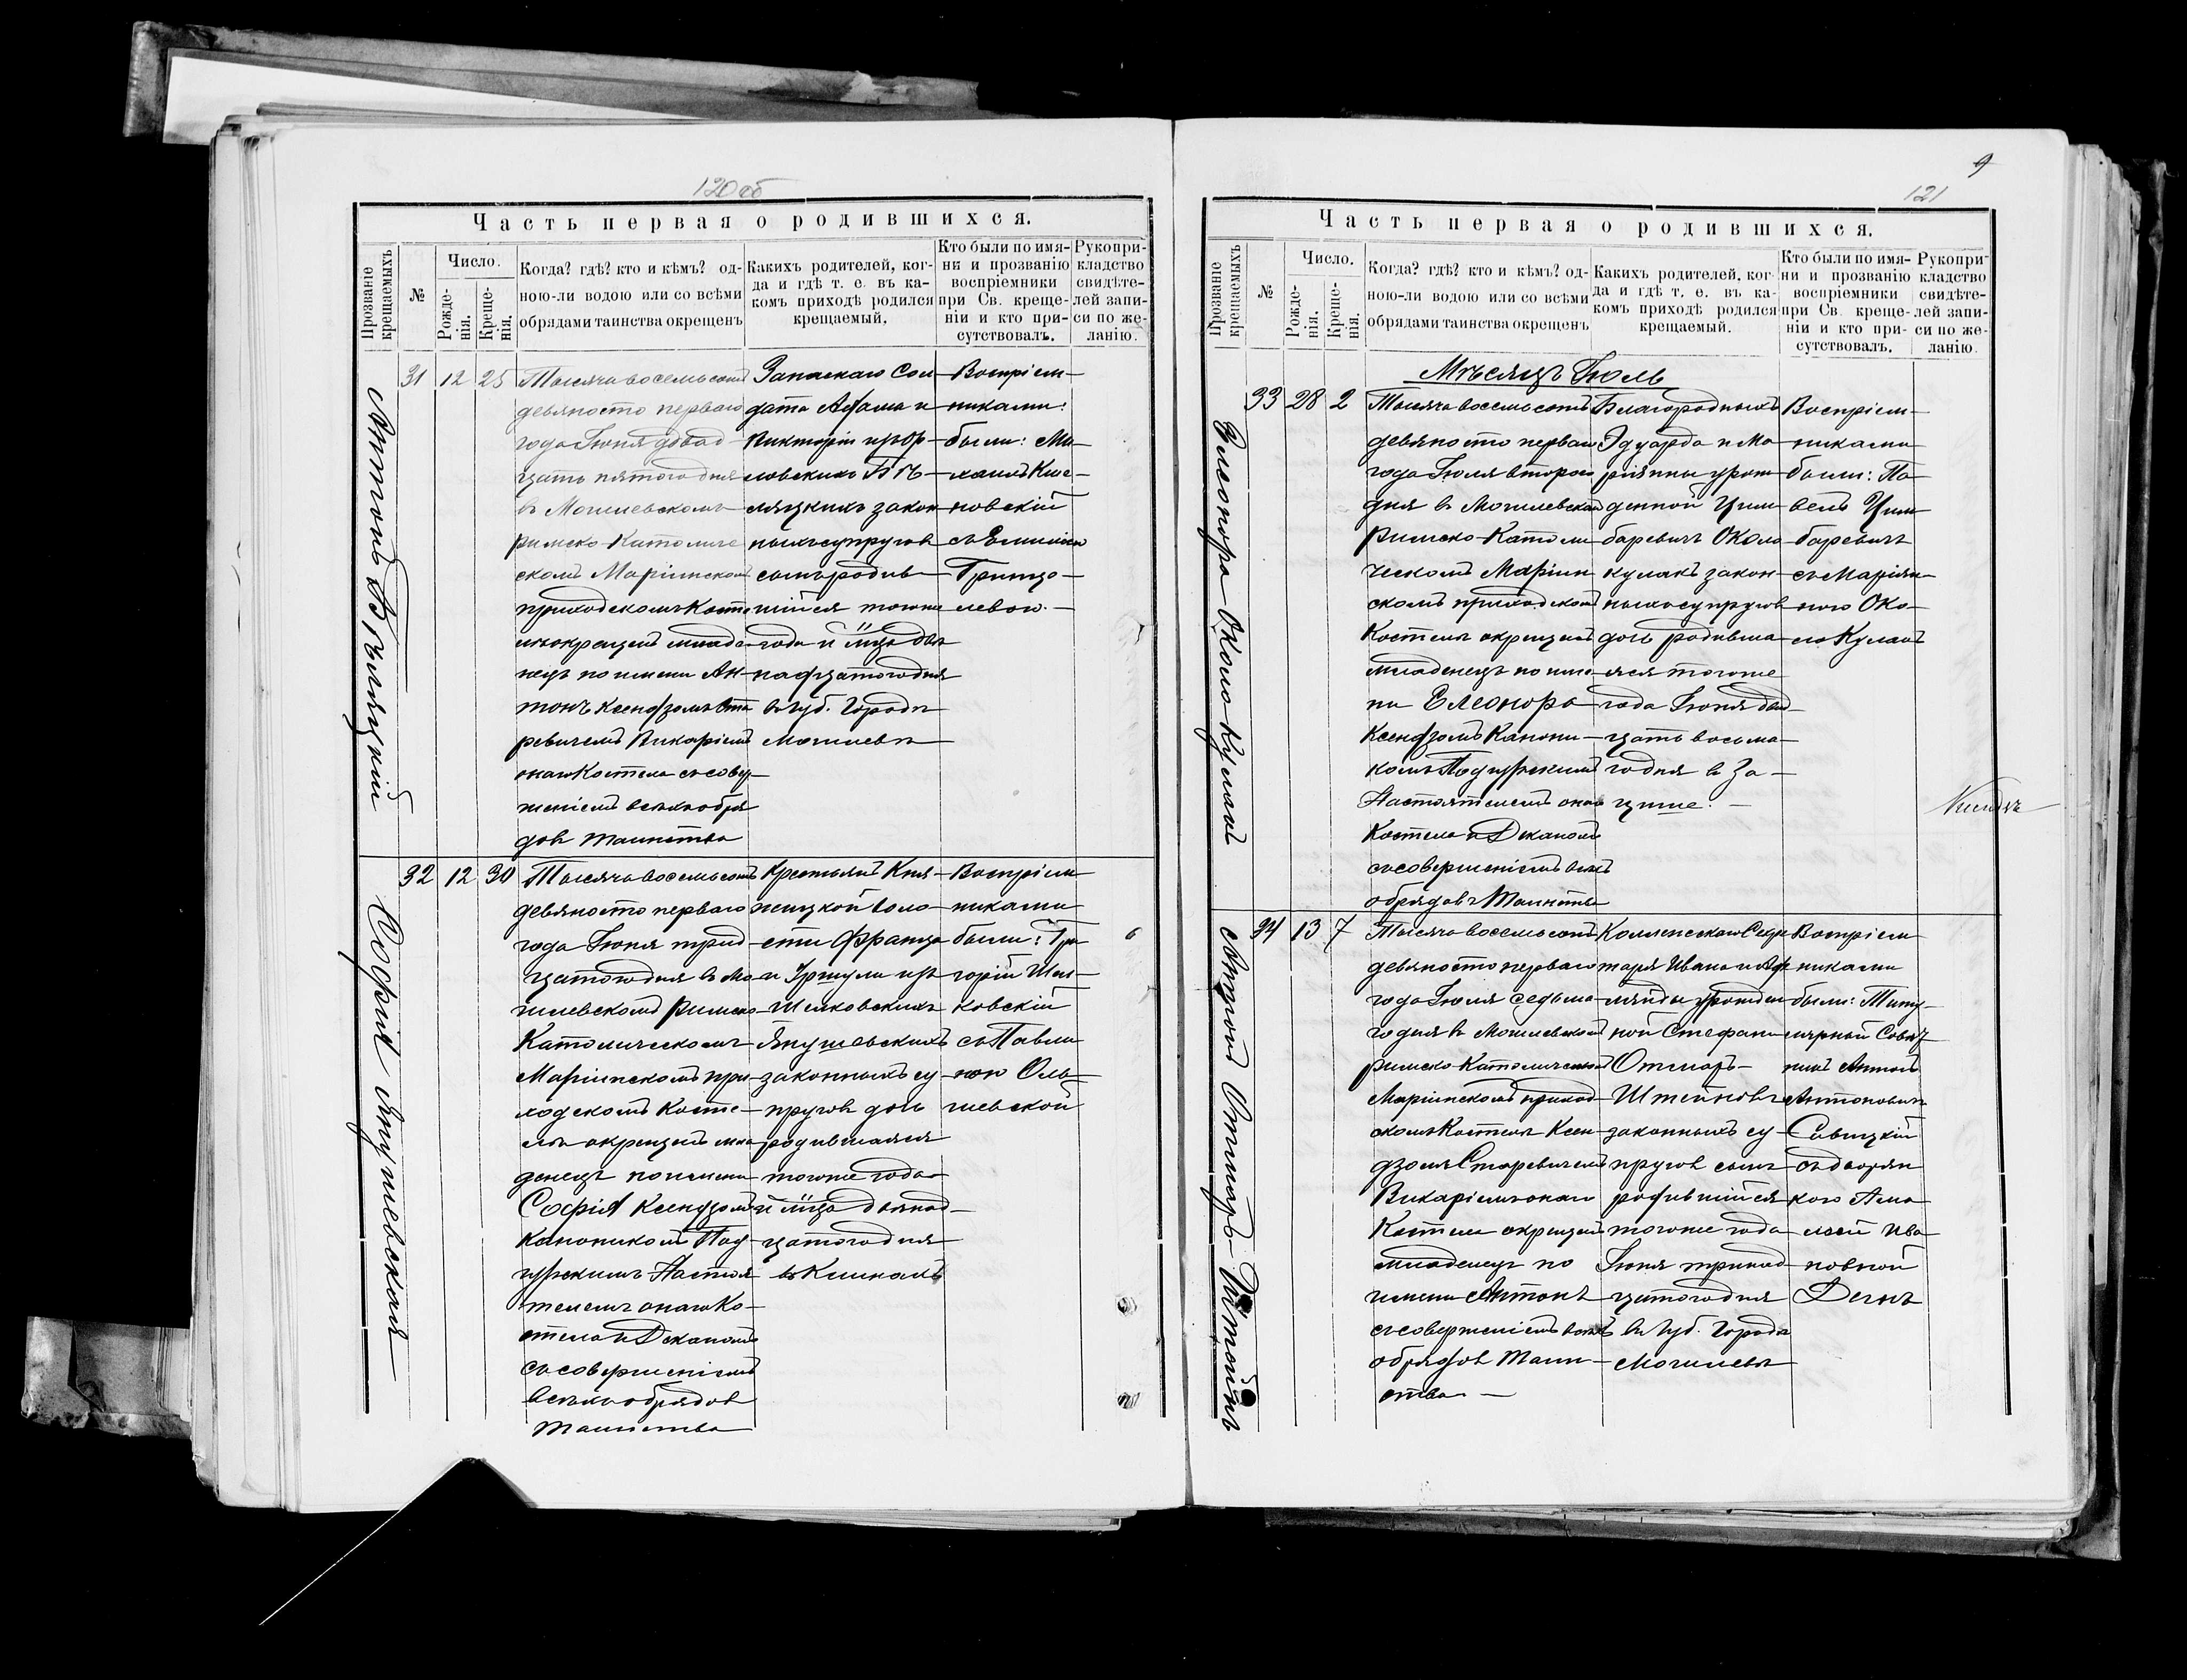 120 об
Часть первая о родившихся.
Прозваніе крещаемыхъ
№
Число.
Рожде-
нія.
Креще-
нія.
Когда? гдѣ? кто и кѣмъ? од-
ною-ли водою или со всѣми
обрядами таинства окрещенъ
Какихъ родителей, ког-
да и гдѣ т. е. въ ка-
комъ приходѣ родился
крещаемый.
Кто были по имя-
ни и прозванію
воспріемники
при Св. креще-
ніи и кто при-
сутствовалъ.
Рукопри-
кладство
свидѣте-
лей запи-
си по же-
ланію.
Антонъ Бѣляцкій
31 12 25
Тысяча восемьсотъ
девяносто перваго
года Іюня двад-
цать пятого дня
въ Могилевскомъ
римско-Католиче
скомъ Маріинском
приходскомъ Косте
лѣ окрещенъ младе-
нецъ по имени Ан-
тонъ Ксендзомъ Ста
ревичемъ Викаріемъ
онаго Костела съ совер-
шеніемъ всѣхъ обря
довъ таинства
Запаснаго Сол-
дата Адама и
Викторіи изъ Ор-
ловскихъ Бѣ-
ляцкихъ закон
ныхъ супруговъ
сынъ родив-
шійся того же
года и м-ца две
надцатого дня
въ губ. Городѣ
Могилевѣ
Воспріем-
никами:
были: Ми-
хаилъ
новскій
съ Емиліею
левою.
Софія Янушевская
32 12 30
Тысяча восемьсотъ
девяносто перваго
года Іюня трид-
цатого дня въ Мо-
гилевскомъ римско-
Католическомъ
Маріинскомъ при-
ходскомъ Косте-
лѣ окрещенъ мла
денецъ по имени
Софія Ксендзомъ
Каноникомъ Под
зурскимъ Настоя
телемъ онаго Ко-
стела и Деканомъ
съ совершеніемъ
всѣхъ обрядовъ
таинства
Крестьянъ Кня-
жицкой воло-
сти Франца
и Уршули изъ
Шилковскихъ
Янушевскихъ
законныхъ су-
пруговъ дочь
родившаяся
того же года
и м-ца двѣнад-
цатого дня
въ
Воспріем-
никами
были: Гри
горій Шил-
ковскій
съ Павли
ною Оль-
шевской
9
121
Часть первая о родившихся.
Прозваніе крещаемыхъ
№
Число.
Рожде-
нія.
Креще-
нія.
Когда? гдѣ? кто и кѣмъ? од-
ною-ли водою или со всѣми
обрядами таинства окрещенъ
Какихъ родителей, ког-
да и гдѣ т. е. въ ка-
комъ приходѣ родился
крещаемый.
Кто были по имя-
ни и прозванію
воспріемники
при Св. креще-
ніи и кто при-
сутствовалъ.
Рукопри-
кладство
свидѣте-
лей запи-
си по же-
ланію.
Мѣсяцъ Іюль
Элеонора Около-Кулакъ
33 28 2
Тысяча восемьсотъ
девяносто перваго
года Іюля второго
дня въ Могилевском
Римско-Католи
ческомъ Маріин
скомъ приходскомъ
Костелѣ окрещенъ
младенецъ по име-
ни Елеонора
Ксендзомъ Канони-
комъ Подзурскимъ
Настоятелемъ онаго
Костела и Деканомъ
съ совершеніемъ всѣхъ
обрядовъ Таинства
Благородныхъ
Эдуарда и Ма
ріянны урож
денной Цим
баревичъ Около
кулакъ закон-
ныхъ супруговъ
дочь родивша
яся того же
года Іюня двад-
цать восьма-
го дня въ За-
Воспріем-
никами
были: Па
велъ Цим
баревичъ
съ Маріян-
ною Око-
ло Кулакъ
Антонъ Отмаръ-Штейнъ
34 13 7
Тысяча восемьсотъ
девяносто перваго
года Іюля седьма
го дня въ Могилевском
римско-Католическом
Маріинскомъ приход
скомъ Костелѣ Ксен-
дзомъ Старевичемъ
Викаріемъ онаго
Костела окрещенъ
младенецъ по
имени Антонъ
съ совершеніемъ всѣхъ
обрядовъ Таин-
ства
Коллежскаго Секре
таря Ивана и
урожден
ной Стефани
Отмаръ-
Штейновъ
законныхъ су-
пруговъ сынъ
родившійся
того же года
Іюня тринад
цатого дня
въ Губ. Городѣ
Могилевѣ
Воспріем
никами
были: Титу-
лярный Совѣт
никъ Антонъ
Антоновичъ
Савицкій
съ дворян
кою Ама
ліей Ива
новной